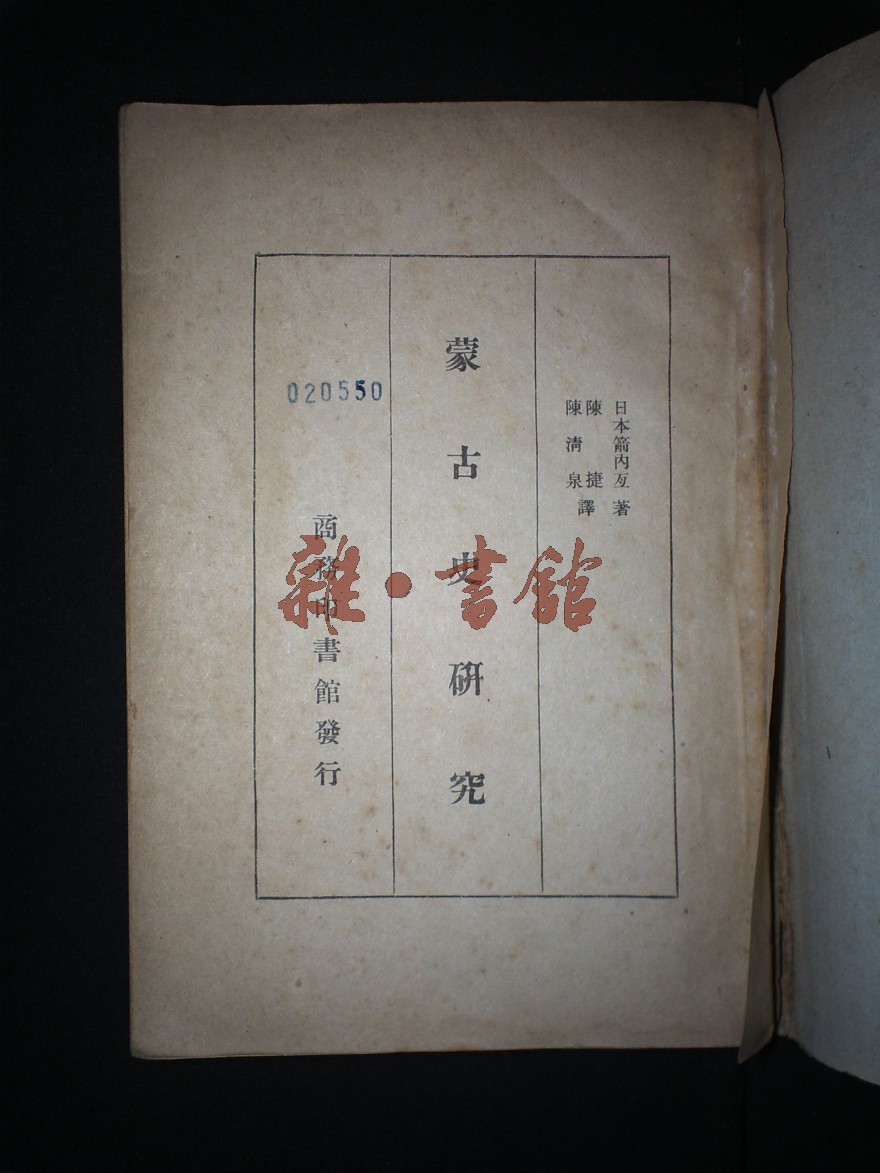 日本箭内亙著
陳捷
陳清泉譯
蒙古史研究
商務印書館發行
020550
雜·書館